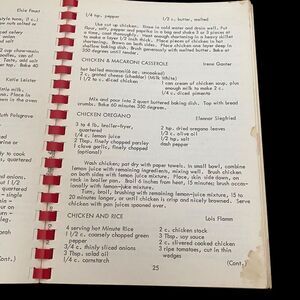 Elsie Faust
1/4 tsp. pepper
1/2 c. butter, melted
Use cut up chicken. Rinse in cold water and drain well. Put
flour, salt, pepper and paprika in a bag and shake 2 or 3 pieces at
a time, coat thoroughly. Heat enough shortening in a heavy skillet
to make a layer 1/2 inch thick. Place chicken skin-side down in hot
shortening. Brown on both sides. Place chicken one layer deep in
shallow baking dish. Brush generously with melted butter. Bake at
350 degrees until tender.
CHICKEN & MACARONI CASSEROLE
Irene Ganter
hot boiled macaroni
2 c. grated cheese
1 1/2 c. diced chicken
1 can cream of chicken soup, plus
enough milk to make 2 c.
1/4 c. diced pimiento
Mix and pour into 2 quart buttered baking dish. Top with bread
crumbs. Bake 60 minutes at 350 degrees.
CHICKEN OREGANO
Eleanor Siegfried
3 to 4 lb. broiler-fryer,
quartered
1/4 c. lemon juice
2 Tbsp. finely chopped parsley
1 clove garlic, finely chopped
(optional)
2 tsp. dried oregano leaves
1/2 c. salad oil
1/2 tsp. salt
dash pepper
Wash chicken; pat dry with paper towels. In small bowl, combine
lemon juice with remaining ingredients, mixing well. Brush chicken
on both sides with lemon-juice mixture. Place, skin side down, on
rack in broiler pan. Broil 6 inches from heat, 15 minutes; brush occasionally
with lemon-juice mixture.
Turn, broil, brushing with remaining lemon-juice mixture, 15 to
20 minutes longer, or until chicken is crisp and nicely browned. Serve
chicken with pan juices spooned over.
CHICKEN AND RICE
Lois Flamm
4 serving hot Minute Rice
1 1/2 c. coarsely chopped green
pepper
3/4 c. thinly sliced onions
3 Tbsp. salad oil
1/4 c. cornstarch
2 c. chicken stock
3 Tbsp. soy sauce
2 c. slivered cooked chicken
3 ripe tomatoes, cut in thin
wedges
25
(Cont.)